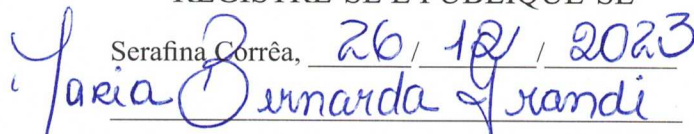 REGISTRE-SE E PUBLIQUE-SE
Serafina Corrêa, 26 / 12 / 2023
Maria Bernarda Grandi